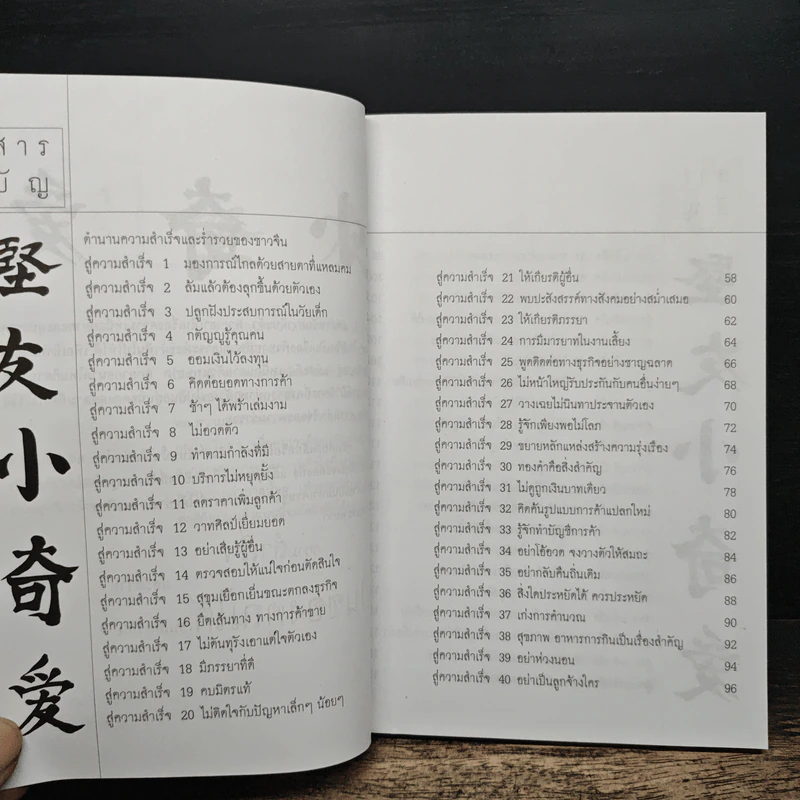 สาร
บัญ
堅
友
小
奇
愛
ตำนานความสำเร็จและร่ำรวยของชาวจีน
สู่ความสำเร็จ 1 มองการณ์ไกลด้วยสายตาที่แหลมคม
สู่ความสำเร็จ 2 ล้มแล้วต้องลุกขึ้นด้วยตัวเอง
สู่ความสำเร็จ 3 ปลูกฝังประสบการณ์ในวัยเด็ก
สู่ความสำเร็จ 4 กตัญญูรู้คุณคน
สู่ความสำเร็จ 5 ออมเงินไว้ลงทุน
สู่ความสำเร็จ 6 คิดต่อยอดทางการค้า
สู่ความสำเร็จ 7 ช้าๆ ได้พร้าเล่มงาม
สู่ความสำเร็จ 8 ไม่อวดตัว
สู่ความสำเร็จ 9 ทำตามกำลังที่มี
สู่ความสำเร็จ 10 บริการไม่หยุดยั้ง
สู่ความสำเร็จ 11 ลดราคาเพิ่มลูกค้า
สู่ความสำเร็จ 12 วาทศิลป์เยี่ยมยอด
สู่ความสำเร็จ 13 อย่าเสียรู้ผู้อื่น
สู่ความสำเร็จ 14 ตรวจสอบให้แน่ใจก่อนตัดสินใจ
สู่ความสำเร็จ 15 สุขุมเยือกเย็นขณะตกลงธุรกิจ
สู่ความสำเร็จ 16 ยึดเส้นทาง ทางการค้าขาย
สู่ความสำเร็จ 17 ไม่ดันทุรังเอาแต่ใจตัวเอง
สู่ความสำเร็จ 18 มีภรรยาที่ดี
สู่ความสำเร็จ 19 คบมิตรแท้
สู่ความสำเร็จ 20 ไม่ติดใจกับปัญหาเล็กๆ น้อยๆ
สู่ความสำเร็จ 21 ให้เกียรติผู้อื่น 58
สู่ความสำเร็จ 22 พบปะสังสรรค์ทางสังคมอย่างสม่ำเสมอ 60
สู่ความสำเร็จ 23 ให้เกียรติภรรยา 62
สู่ความสำเร็จ 24 การมีมารยาทในงานเลี้ยง 64
สู่ความสำเร็จ 25 พูดติดต่อทางธุรกิจอย่างชาญฉลาด 66
สู่ความสำเร็จ 26 ไม่หน้าใหญ่รับประกันกับคนอื่นง่ายๆ 68
สู่ความสำเร็จ 27 วางเฉยไม่นินทาประจานตัวเอง 70
สู่ความสำเร็จ 28 รู้จักเพียงพอไม่โลภ 72
สู่ความสำเร็จ 29 ขยายหลักแหล่งสร้างความรุ่งเรื่อง 74
สู่ความสำเร็จ 30 ทองคำคือสิ่งสำคัญ 76
สู่ความสำเร็จ 31 ไม่ดูถูกเงินบาทเดียว 78
สู่ความสำเร็จ 32 คิดค้นรูปแบบการค้าแปลกใหม่ 80
สู่ความสำเร็จ 33 รู้จักทำบัญชีการค้า 82
สู่ความสำเร็จ 34 อย่าโอ้อวด จงวางตัวให้สมถะ 84
สู่ความสำเร็จ 35 อย่ากลับคืนถิ่นเดิม 86
สู่ความสำเร็จ 36 สิ่งใดประหยัดได้ ควรประหยัด 88
สู่ความสำเร็จ 37 เก่งการคำนวณ 90
สู่ความสำเร็จ 38 สุขภาพ อาหารการกินเป็นเรื่องสำคัญ 92
สู่ความสำเร็จ 39 อย่าห่วงนอน 94
สู่ความสำเร็จ 40 อย่าเป็นลูกจ้างใคร 96